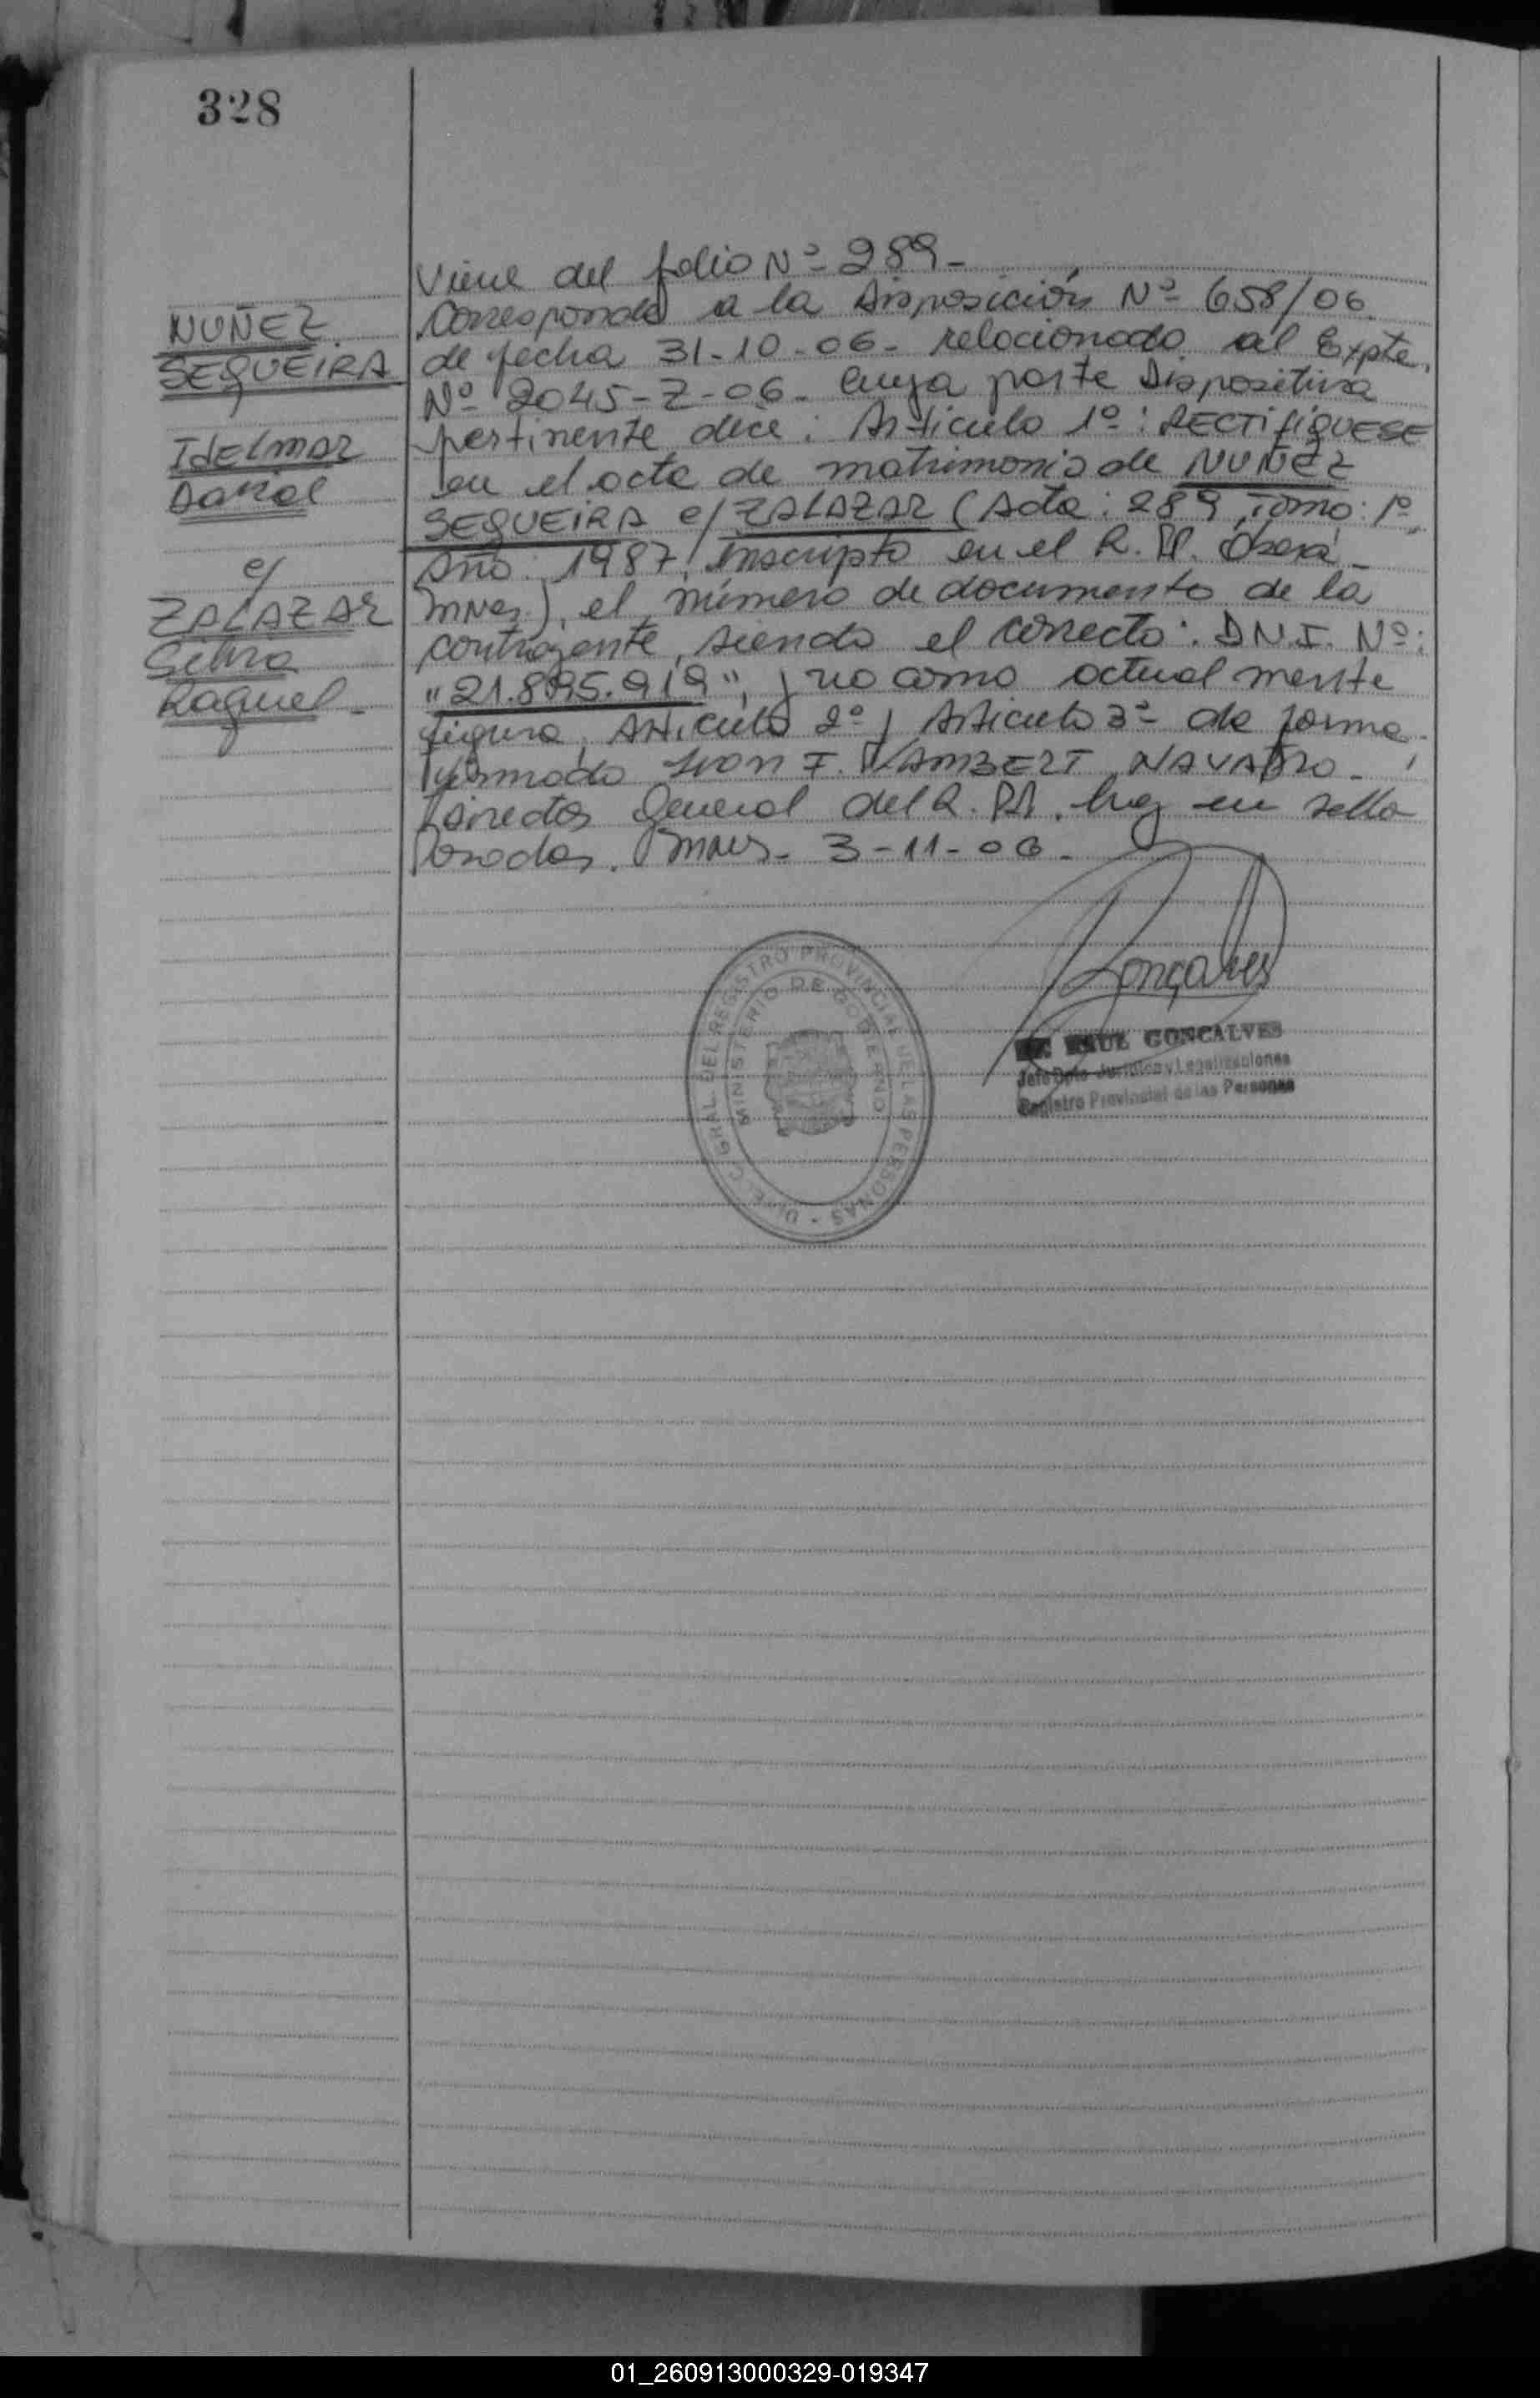 328
NUÑEZ
SEQUEIRA
IDELMAR
Daniel
c/
ZALAZAR
Silvia
Raquel-
Viene del folio Nº 289-
Corresponde a la Disposición Nº 658/06.
de fecha 31-10-06- relacionado al Expte.
Nº 2045-Z-06- cuya parte Dispositiva
pertinente dice: Artículo 1º: RECTIFIQUESE
en el acta de matrimonio de NUÑEZ
SEQUEIRA c/ ZALAZAR (Acta: 289, Tomo: 1º,
Año: 1987, inscripto en el R. PP. Oberá-
Mnes.), el número de documento de la
contrayente, siendo el correcto: D.N.I. Nº:
"21.895.919", y no como actual mente
figura, Artículo 2º y Artículo 3º de forma.
firmado Ivon F. LAMBERT NAVARRO-
Director General del R. PP. hay un sello
Posadas. Mnes- 3-11-06-
DIREC. GRAL. DEL REGISTRO PROVINCIAL DE LAS PERSONAS -
MINISTERIO DE GOBIERNO
Gonçalves
RAUL GONCALVES
Jefe Dpto Jurídico y Legalizaciones
Registro Provincial de las Personas
01_260913000329-019347